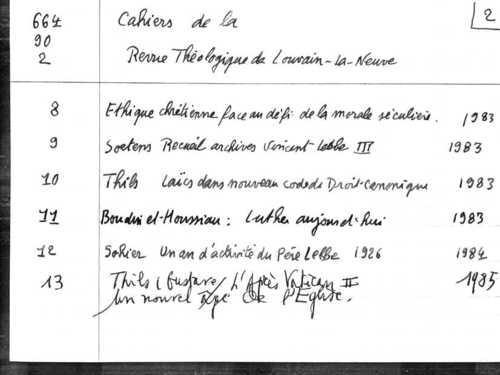 664 Cahiers de la 2
90
2 Revue Théologique de Louvain-La-Neuve
8 Ethique chrétienne face au défi de la morale séculière. 1983
9 Soetens Recueil archives Vincent Lebbe III 1983
10 Thils Laïcs dans nouveau code de Droit-Canonique 1983
11 et Houssiau: Luther aujourd'hui 1983
12 Sohier Un an d'activité du Père Lebbe 1926 1984
13 Thils (Gustave) L'Après Vatican II 1985
Un nouvel âge de l'Eglise.